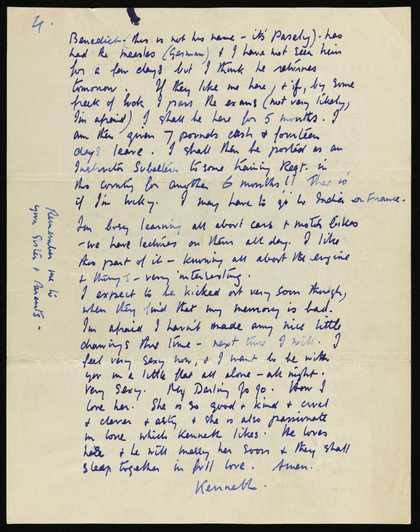 4.
Benedict - this is not his name - its Pasely). has
had the measles (German) & I have not seen him
for a few days but I think he returns
tomorrow. If they like me here, & if, by some
freak of luck I pass the exams (not very likely,
I'm afraid) I shall be here for 5 months. I
am then given 7 pounds cash & fourteen
days leave. I shall then be posted as an
Instructor Subaltern to some training Regt. in
this country for another 6 months!! That is
if I'm lucky. I may have to go to India or France.
I'm busy learning all about cars & motor bikes
- we have lectures on them all day. I like
this part of it - knowing all about the engine
& things - very interesting.
I expect to be kicked out very soon though,
when they find that my memory is bad.
I'm afraid I havn't made any nice little
drawings this time - next time I will. I
feel very sexy now, & I want to be with
you in a little flat all alone - all night.
Very sexy. My Darling Jo Jo. How I
love her. She is so good & kind & cruel
& clever & arty & she is also passionate
in love which Kenneth likes. He loves
her & he will marry her soon & they shall
sleep together in full love. Amen.
Kenneth.
Remember me to
your Sister & Aunts -